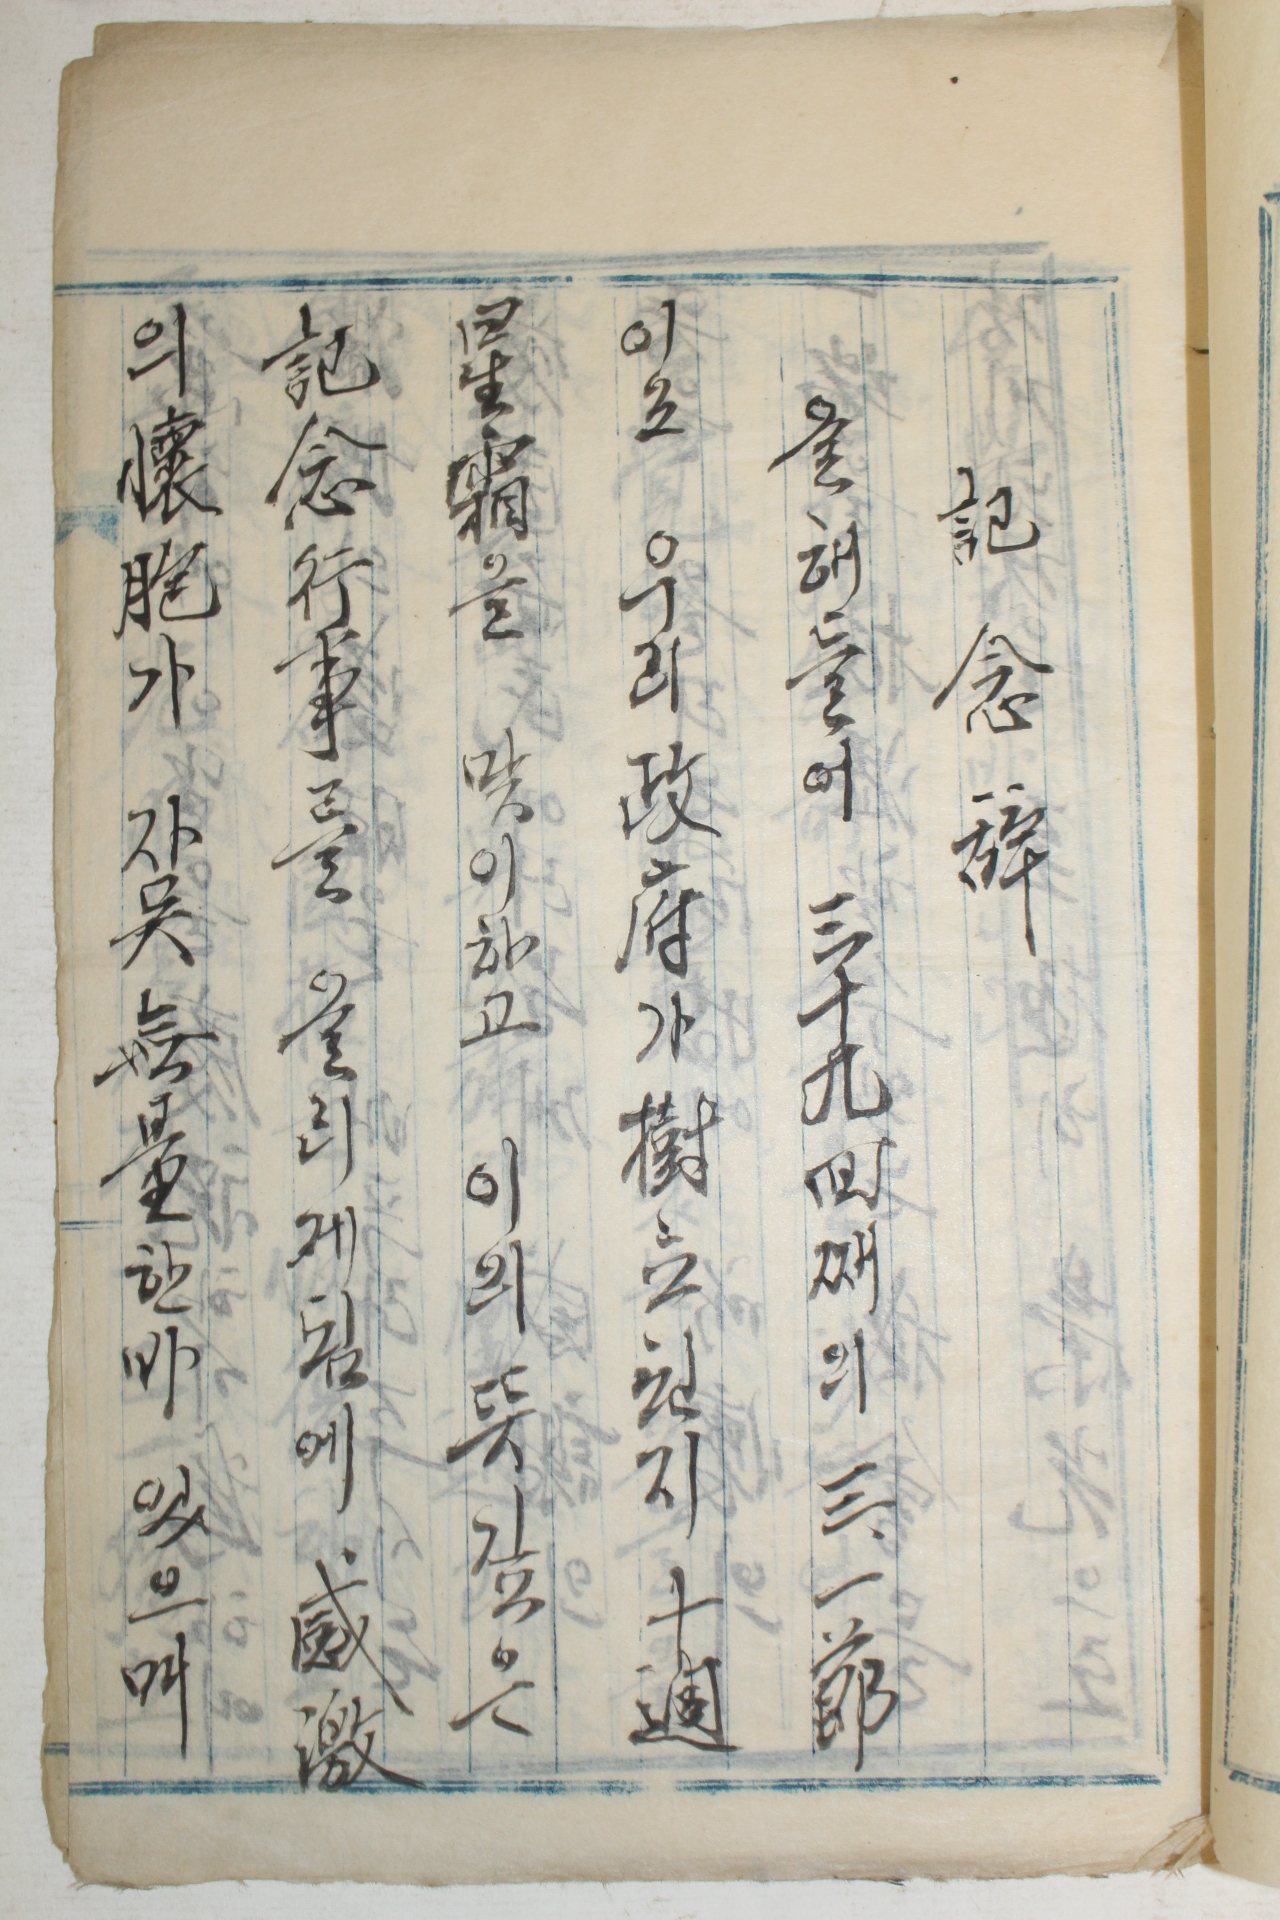 記念辭
올해들어 三十九回째의 三.一節
이요 우리政府가樹立된지十週
星霜을 맞이하고 이의뜻깊은
記念行事를 올리게됨에 感激
의懷胞가 자못無量한바 있으며